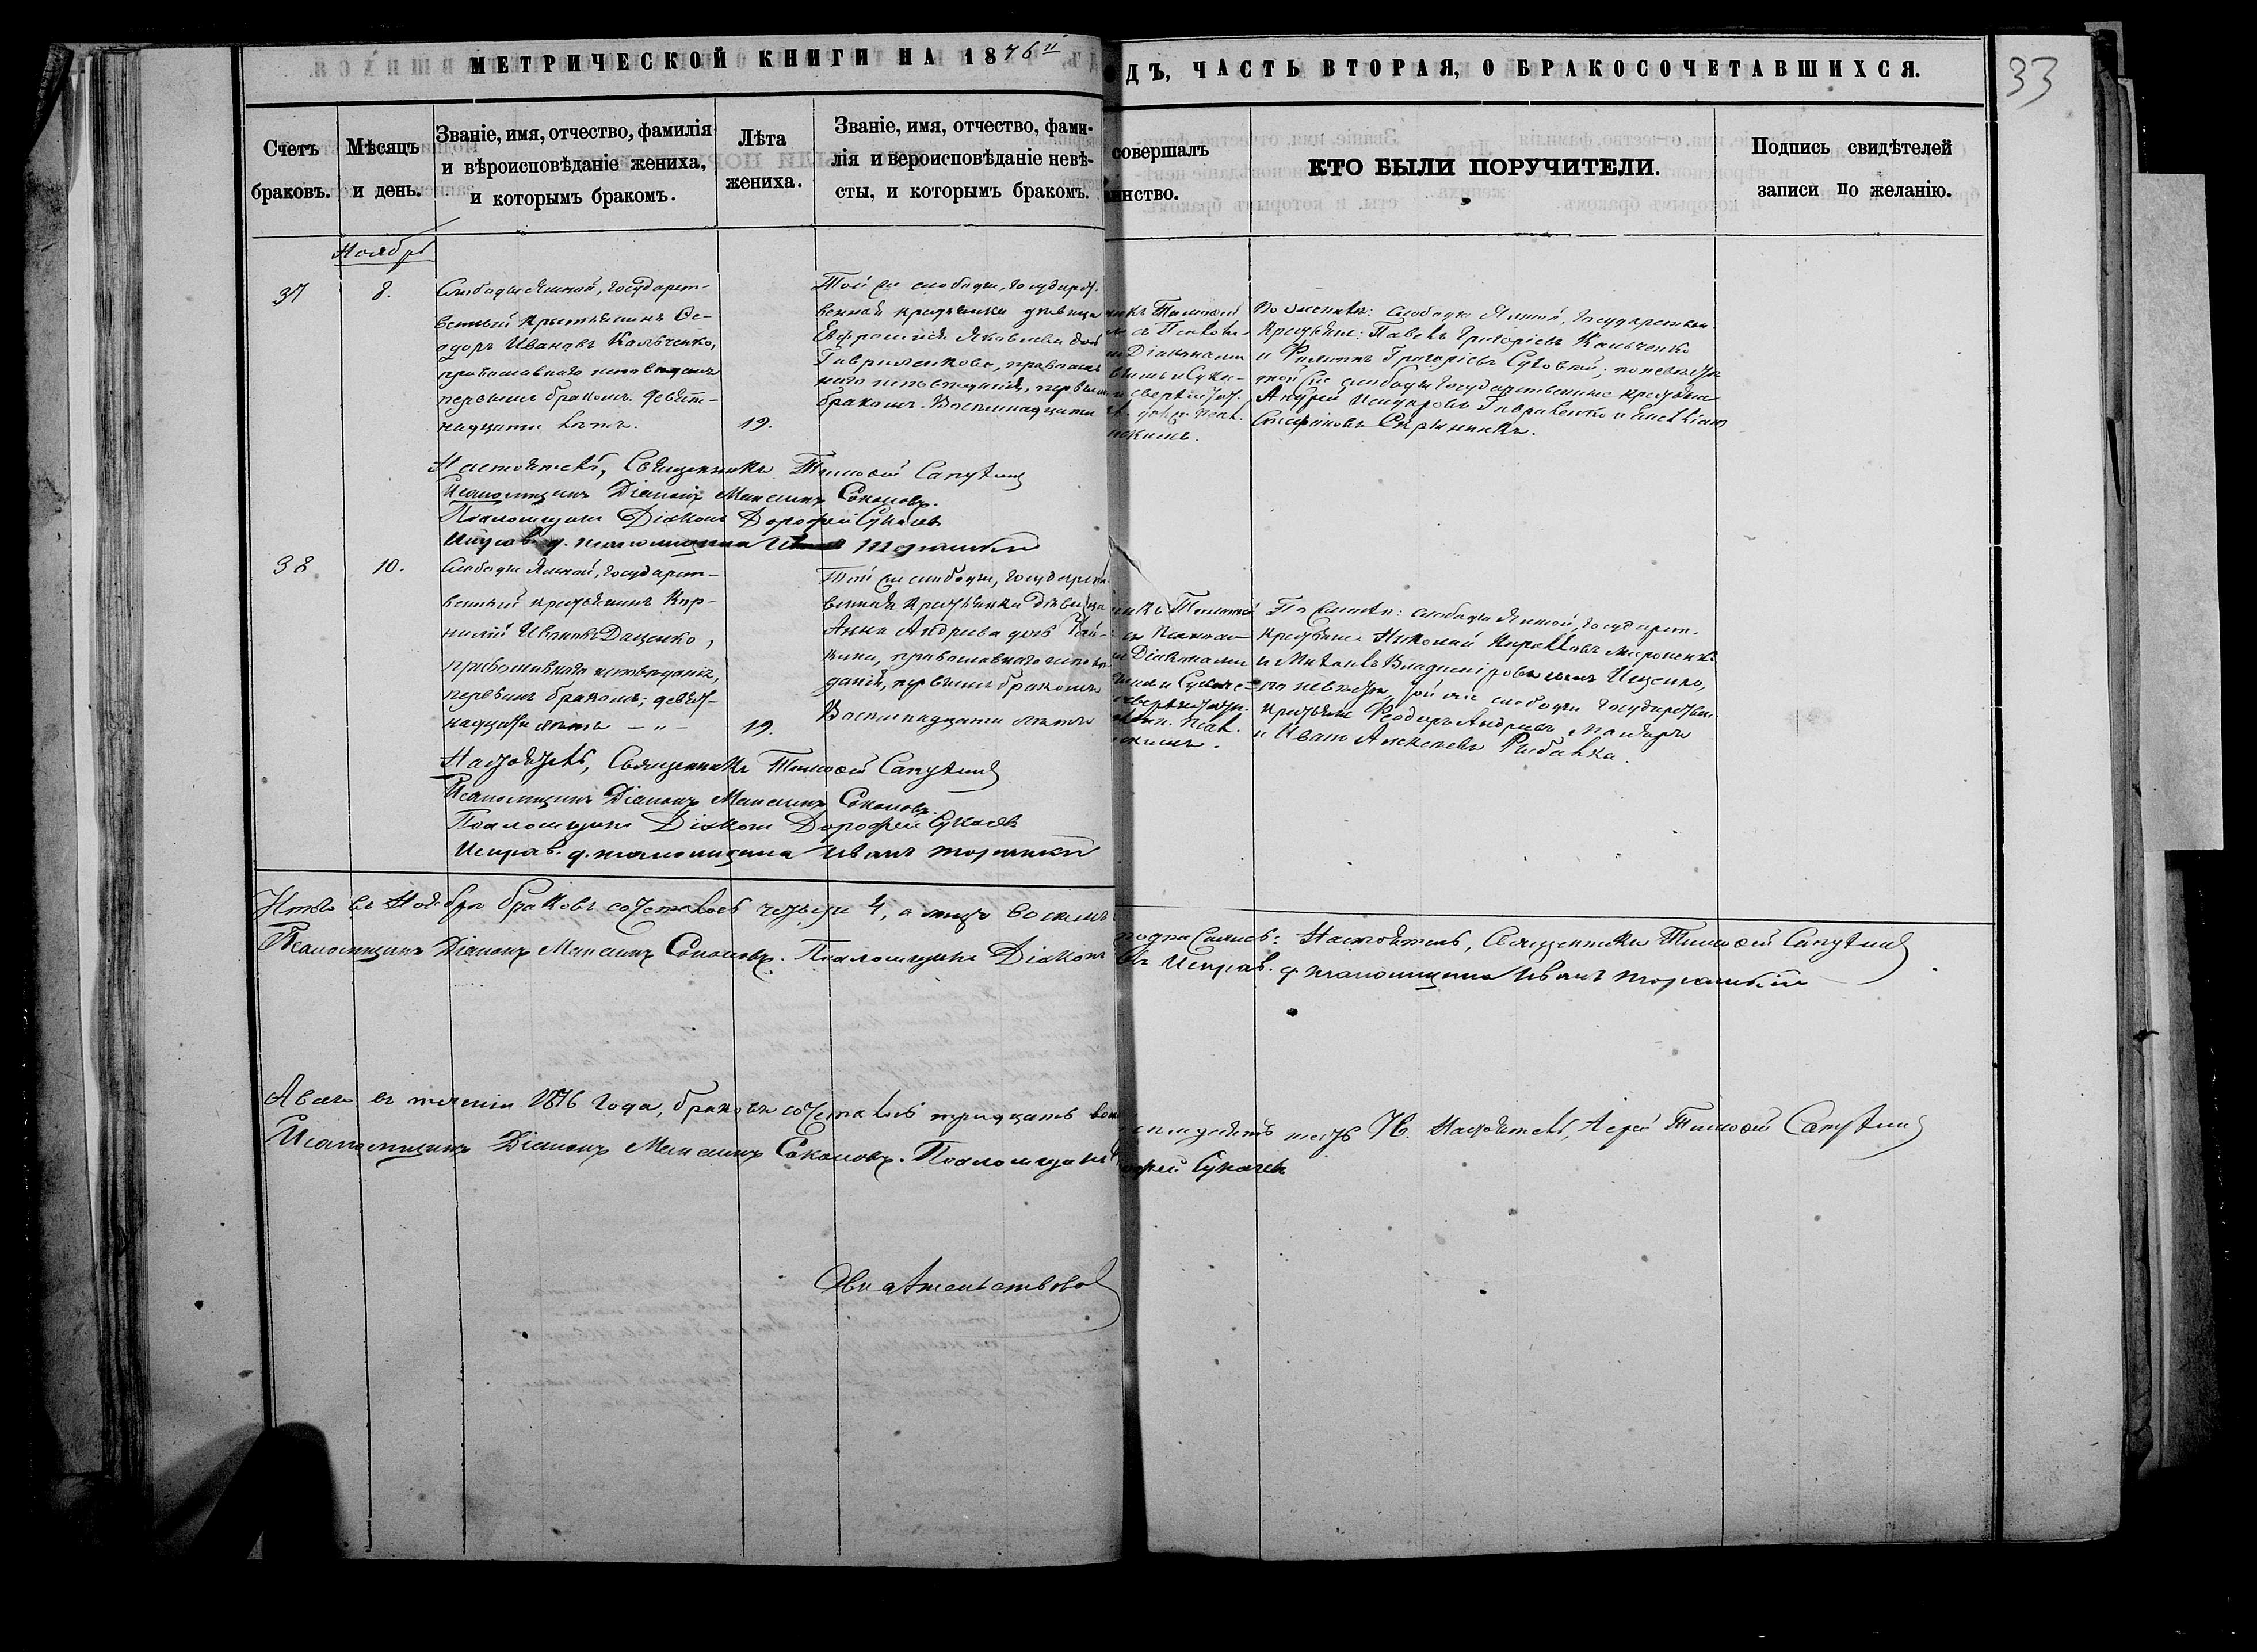 МЕТРИЧЕСКОЙ КНИГИ НА 1876
ДЪ, ЧАСТЬ ВТОРАЯ, О БРАКОСОЧЕТАВШИХСЯ.
33
Счетъ браковъ.
Мѣсяцъ и день.
Званіе, имя, отчество, фамилія
и вѣроисповѣданіе жениха,
и которымъ бракомъ.
Лѣта
жениха.
Званіе, имя, отчество, фами-
лія и вероисповѣданіе невѣ-
сты, и которымъ бракомъ.
совершалъ
инство.
КТО БЫЛИ ПОРУЧИТЕЛИ.
Подпись свидѣтелей
записи по желанію.
Ноябрь
37
8.
Слободы Ямной, Государст-
венный крестьянинъ Ѳе-
одоръ Ивановъ Кальченко,
православнаго исповеданія
первымъ бракомъ. Девят-
надцати лѣтъ.
19.
Той же слободы, Государст-
венная крестьянка девица
Евфросинія Яковлева дочь
Гавриленкова, православ-
наго исповеданія, первымъ
бракомъ. Восемнадцати
Тимоѳей
Діаконами
По женихѣ: слободы Ямной, Государствен.
крестьяне: Павелъ Григоріевъ Кальченко
и Филиппъ Григоріевъ Суховій; по невѣстѣ
той же слободы Государственные крестьяне
Андрей
Стефановъ Скрынникъ.
Настоятель, Священникъ Тимоѳей
Псаломщикъ Діаконъ Максимъ Соколовъ.
Псаломщикъ Діаконъ Дорофей Сукачевъ
Исправ. д. псаломщика
38
10.
Слободы Ямной, Государст-
венный крестьянинъ Кор-
нилій Ивановъ Даценко,
православнаго исповеданія,
первымъ бракомъ; девят-
надцати лѣтъ
19.
Той же слободы, Государст-
венная крестьянка девица
Анна Андреева дочь
православнаго испове-
данія, первымъ бракомъ
Восемнадцати лѣтъ
Тимоѳей
Діаконами
По женихѣ: слободы Ямной, Государст.
крестьяне Николай Кирилловъ Мироненко
и Михаилъ Владиміровъ Ищенко,
по невѣстѣ, той же слободы Государствен.
крестьяне Ѳеодоръ Андреевъ
и Иванъ Алексеевъ Рыбалка.
Настоятель, Священникъ Тимоѳей
Псаломщикъ Діаконъ Максимъ Соколовъ.
Псаломщикъ Діаконъ Дорофей Сукачевъ
Исправ. д. псаломщика Иванъ
Итого въ Ноябре браковъ состоялось четыре 4, а лицъ восемь
Настоятель, Священникъ Тимоѳей
Псаломщикъ Діаконъ Максимъ Соколовъ. Псаломщикъ Діаконъ
Исправ. д. псаломщика Иванъ
А всего въ теченіи 1876 года, браковъ состоялось тридцать
76. Настоятель, Іерей Тимоѳей
Псаломщикъ Діаконъ Максимъ Соколовъ. Псаломщикъ
Сукачевъ
Свидѣтельствовалъ